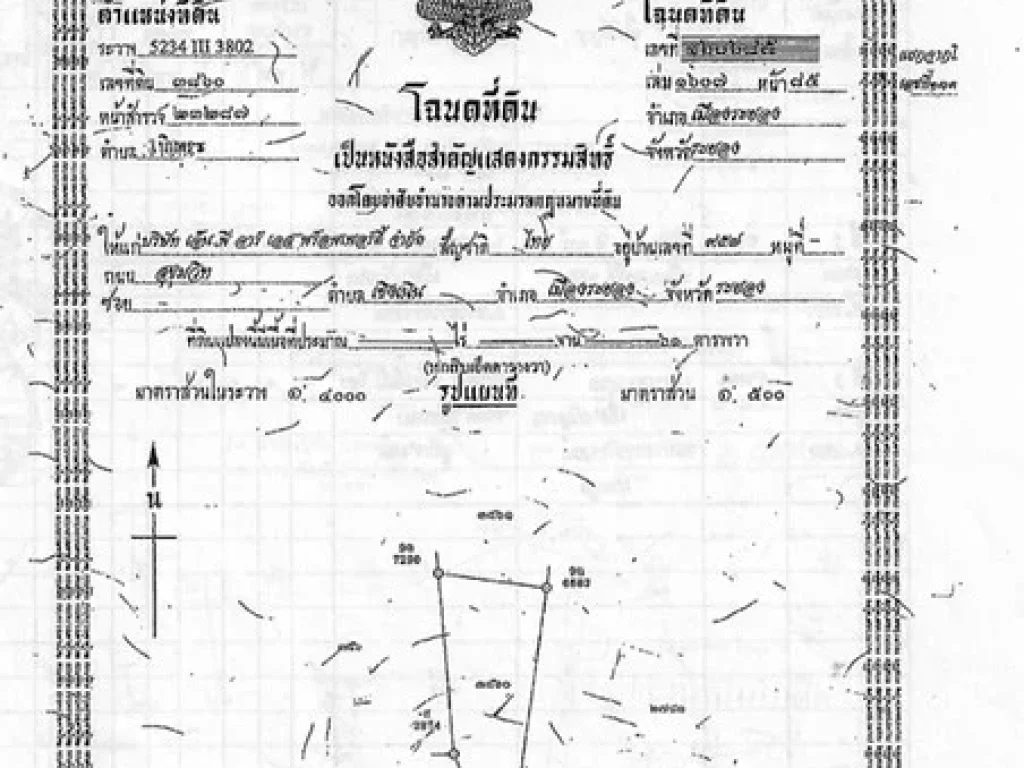 ตำแหน่งที่ดิน
โฉนดที่ดิน
ระวาง 5234 III 3802
เลขที่
เลขที่ดิน ๓๘๖๐
เล่ม ๑๖๐๗ หน้า ๘๕
หน้าสำรวจ ๒๓๒๘๗
โฉนดที่ดิน
อำเภอ เมืองระยอง
ตำบล
จังหวัด ระยอง
เป็นหนังสือสำคัญแสดงกรรมสิทธิ์
ออกโดยอาศัยอำนาจตามประมวลกฎหมายที่ดิน
ให้แก่ บริษัท เอ็ม พี อาร์ เอส พร็อพเพอร์ตี้ จำกัด สัญชาติ ไทย อยู่บ้านเลขที่ ๙๕๗ หมู่ที่ -
ถนน สุขุมวิท
ซอย - ตำบล เชิงเนิน อำเภอ เมืองระยอง จังหวัด ระยอง
ที่ดินแปลงนี้มีเนื้อที่ประมาณ - ไร่ - งาน ๖๑ ตารางวา
(หกสิบเอ็ดตารางวา)
มาตราส่วนในระวาง ๑: ๔๐๐๐ รูปแผนที่ มาตราส่วน ๑: ๕๐๐
น
๓๘๖๑
7290
6893
๓๘๖๐